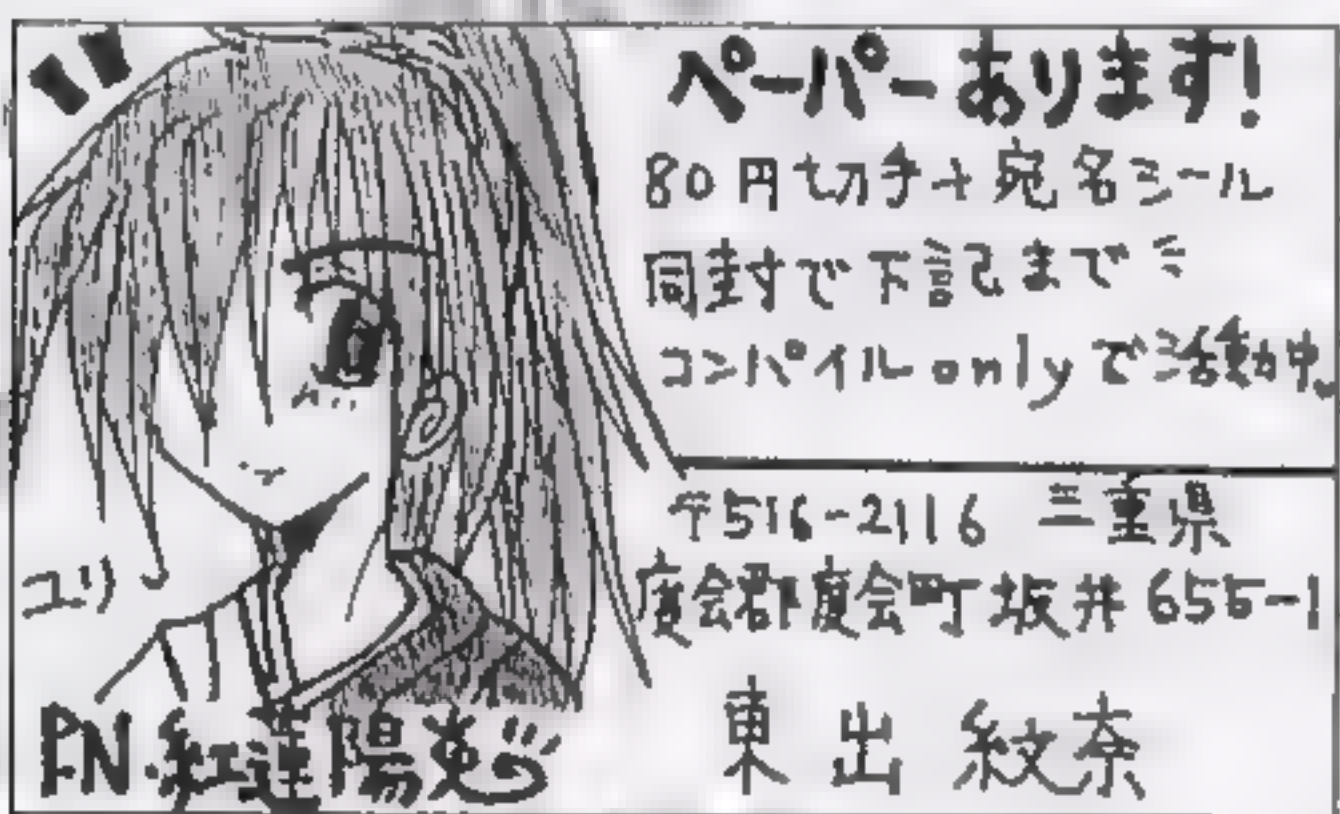 ペーパーあります!
80円切手+宛名シール
同封で下記まで
コンパイルonlyで活動中。
〒516-2116 三重県
度会郡度会町坂井655-1
東出 紋奈
ユリ
P.N.紅蓮陽